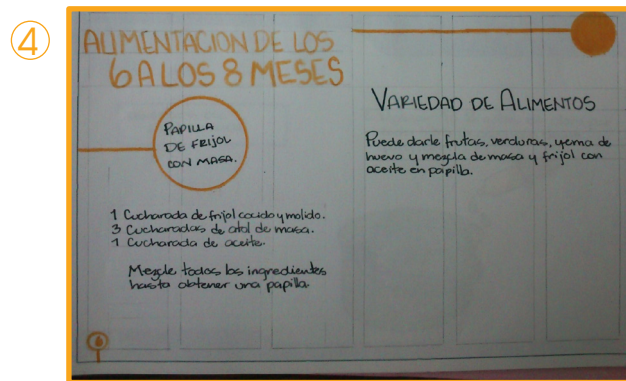 4
ALIMENTACION DE LOS
6 A LOS 8 MESES
PAPILLA
DE FRIJOL
CON MASA.
1 Cucharada de frijol cocido y molido.
3 Cucharadas de atol de masa.
1 Cucharada de aceite.
Mezcle todos los ingredientes
hasta obtener una papilla.
VARIEDAD DE ALIMENTOS
Puede darle frutas, verduras, yema de
huevo y mezcla de masa y frijol con
aceite en papilla.